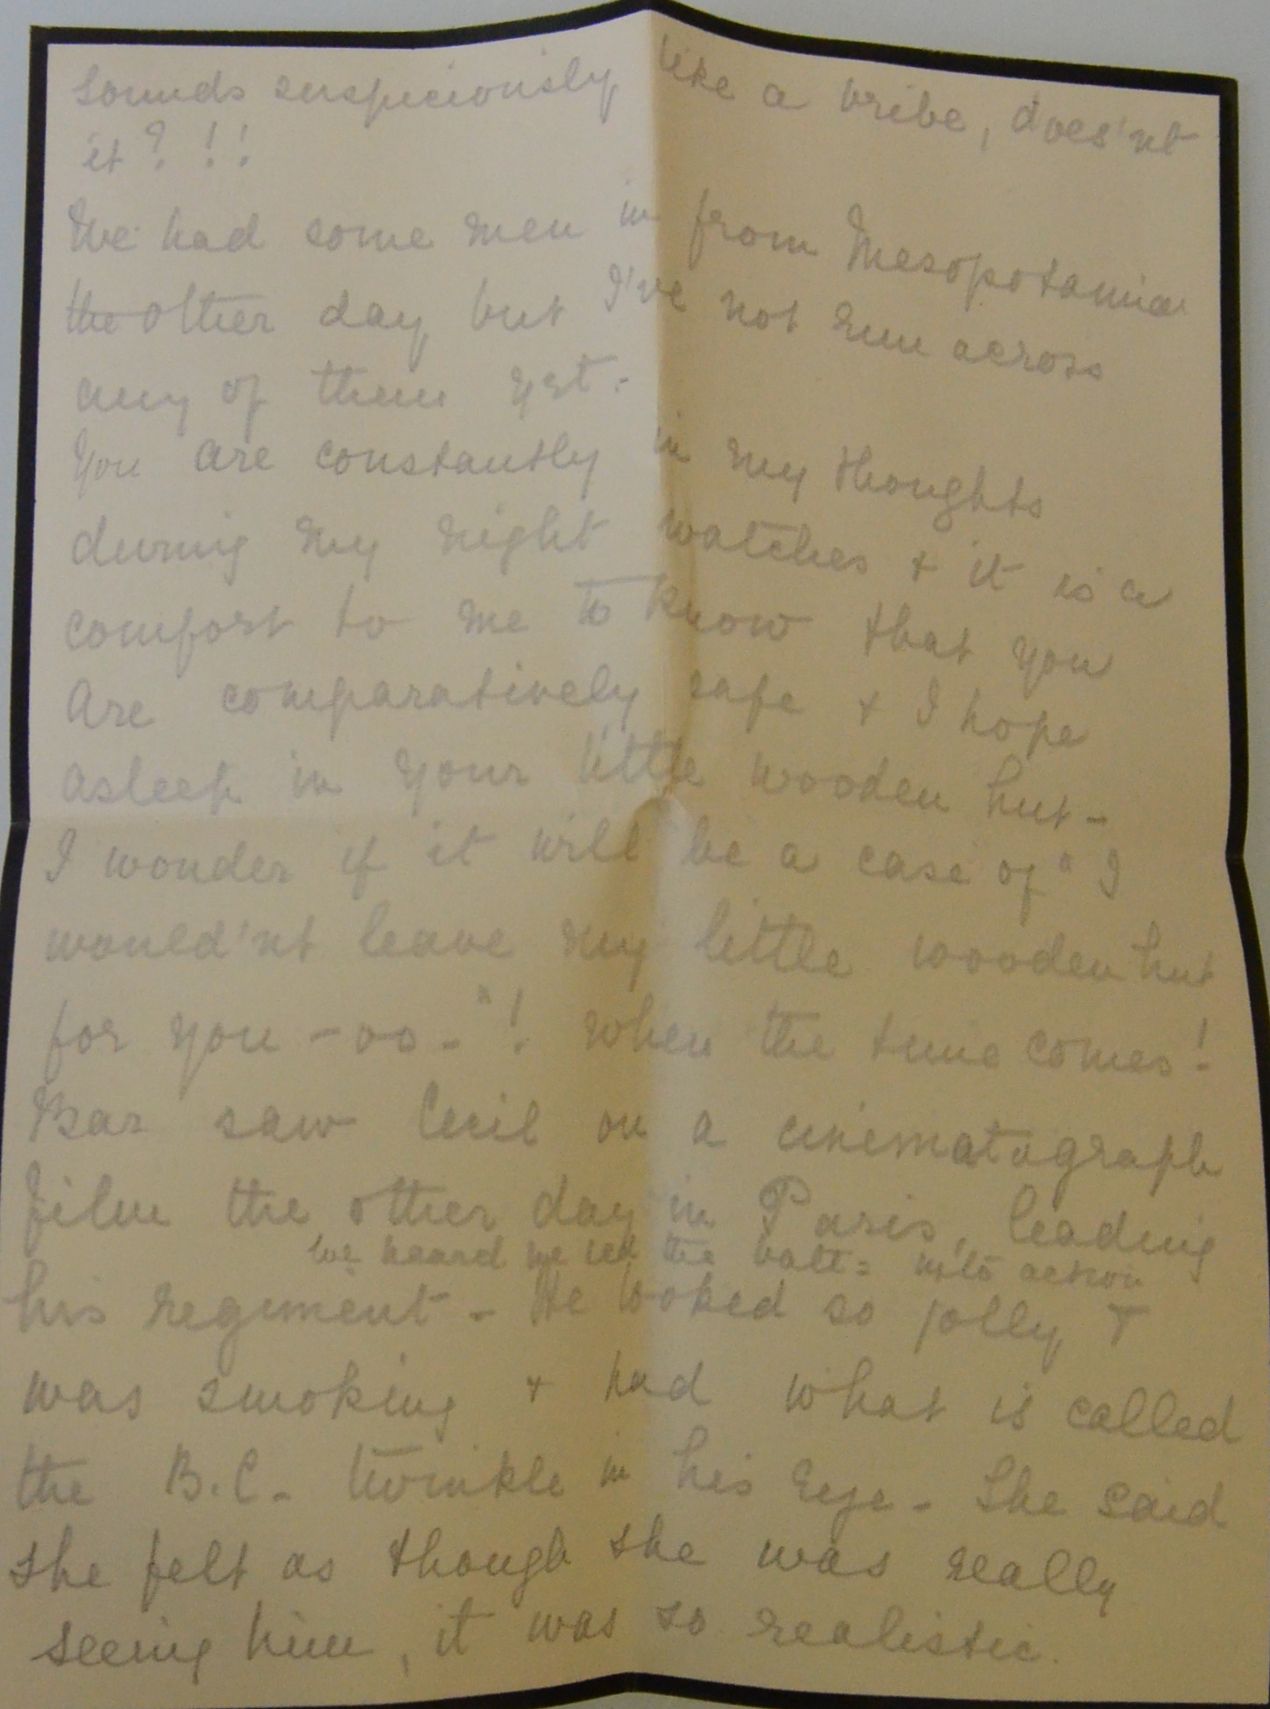 sounds suspiciously like a bribe, does'nt
it? !!
We had some men in from Mesopotamia
the other day but I've not run across
any of them yet.
You are constantly in my thoughts
during my night watches + it is a
comfort to me to know that you
are comparatively safe + I hope
asleep in your little wooden hut -
I wonder if it will be a case of "I
would'nt leave my little wooden hut
for you - oo -"! when the time comes!
Bar saw Cecil on a cinematograph
film the other day in Paris, leading
we heard he led the batt: into action
his regiment - He looked so jolly +
was smoking + had what is called
the B.C. twinkle in his eye - She said
she felt as though she was really
seeing him, it was so realistic.